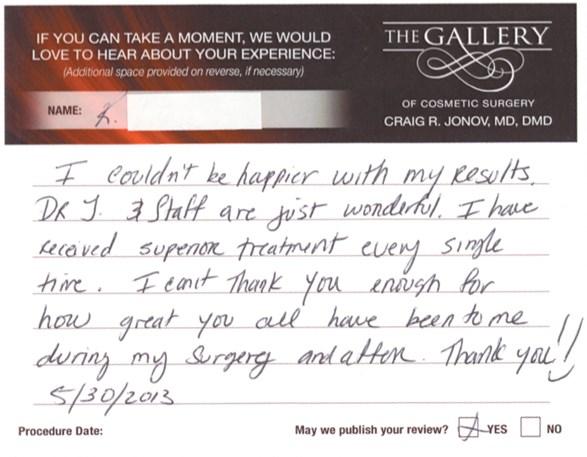 IF YOU CAN TAKE A MOMENT, WE WOULD
LOVE TO HEAR ABOUT YOUR EXPERIENCE:
(Additional space provided on reverse, if necessary)
NAME: K.
THE GALLERY
OF COSMETIC SURGERY
CRAIG R. JONOV, MD, DMD
I couldn't be happier with my results.
DR J. & Staff are just wonderful. I have
received superior treatment every single
time. I can't Thank you enough for
how great you all have been to me
during my Surgery and after. Thank you!!
5/30/2013
Procedure Date:
May we publish your review? YES NO